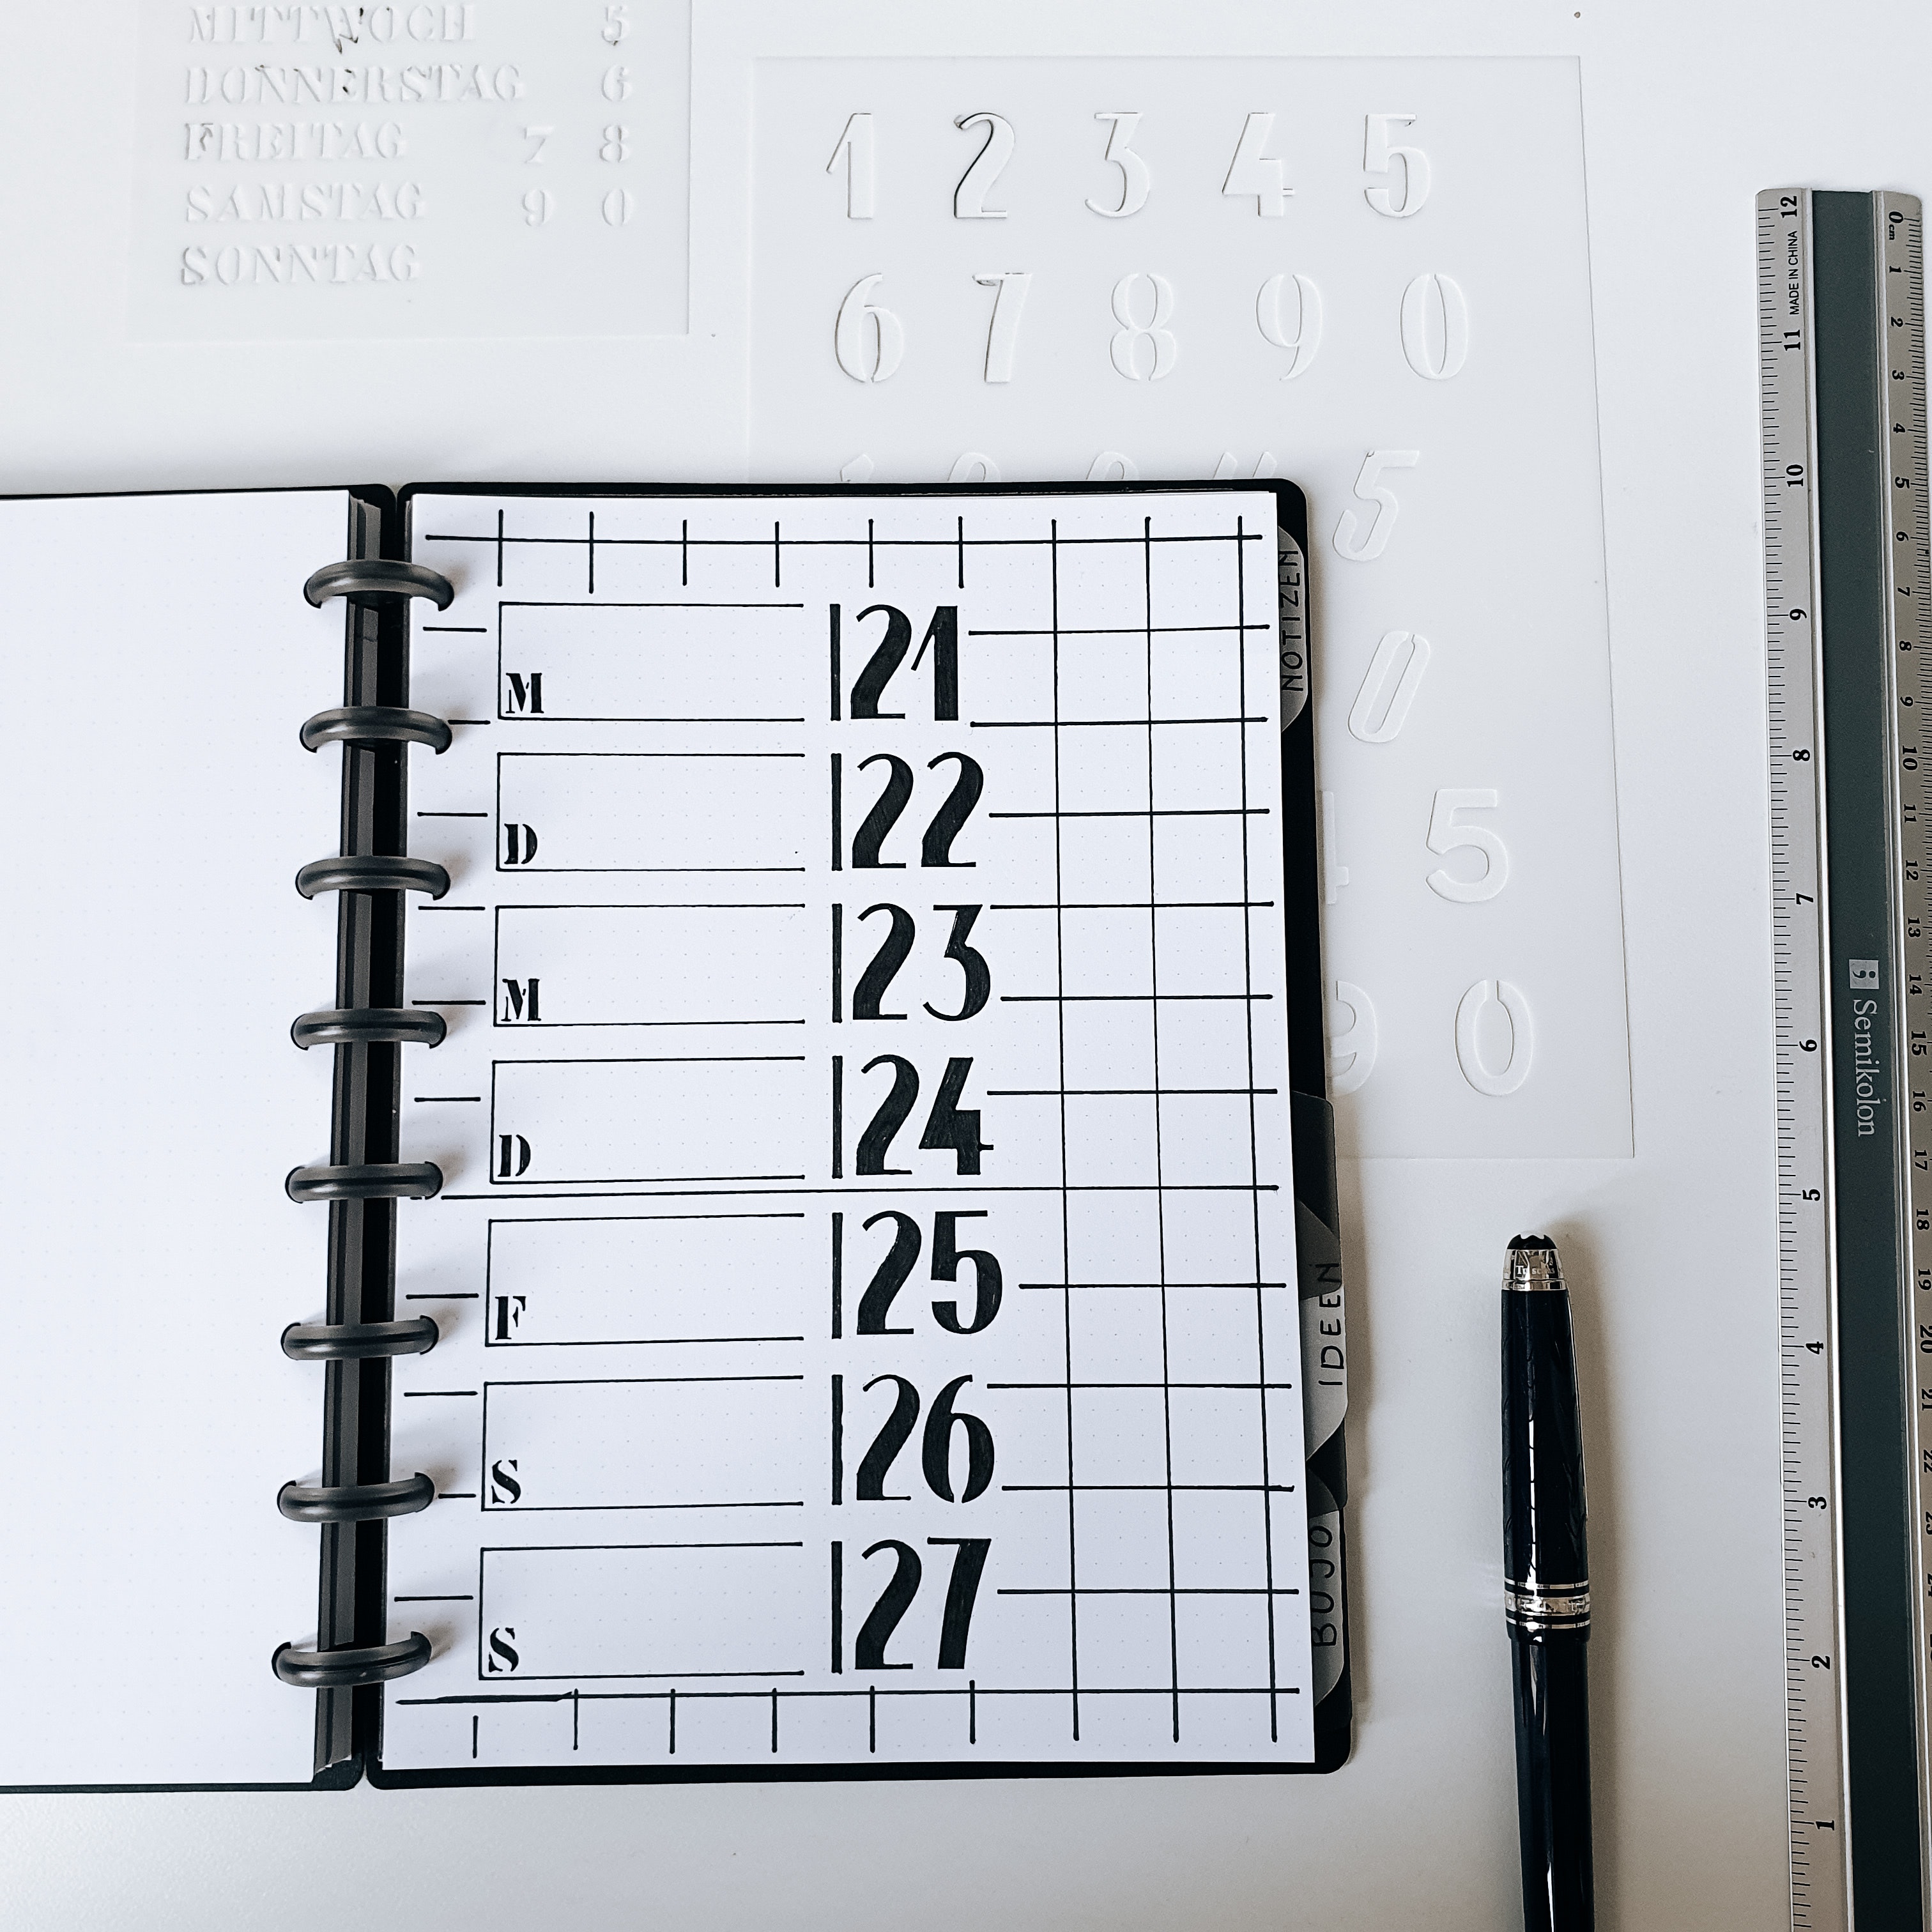 MITTWOCH 5
DONNERSTAG 6
FREITAG 7 8
SAMSTAG 9 0
SONNTAG
1 2 3 4 5
6 7 8 9 0
5
0
5
9 0
M 21
D 22
M 23
D 24
F 25
S 26
S 27
NOTIZEN
IDEEN
BUJO
12 11 10 9 8 7 6 5 4 3 2 1
MADE IN CHINA
Semikolon
0 cm 1 2 3 4 5 6 7 8 9 10 11 12 13 14 15 16 17 18 19 20 21 22 23